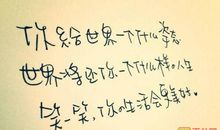 你给世界一个什么姿态
世界将还你一个什么样的人生
笑一笑,你的生活会更美好。